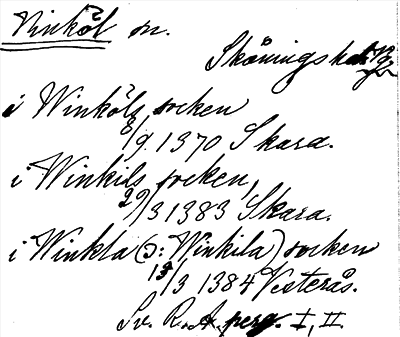 Vinköl sn.
Skånings hd.
i Winköls socken
8/9 1370 Skara.
i Winkils socken,
29/3 1383 Skara.
i Winkla (ɔ: Winkila) socken
13/3 1384 Vesterås.
Sv. R. A. perg. I, II.